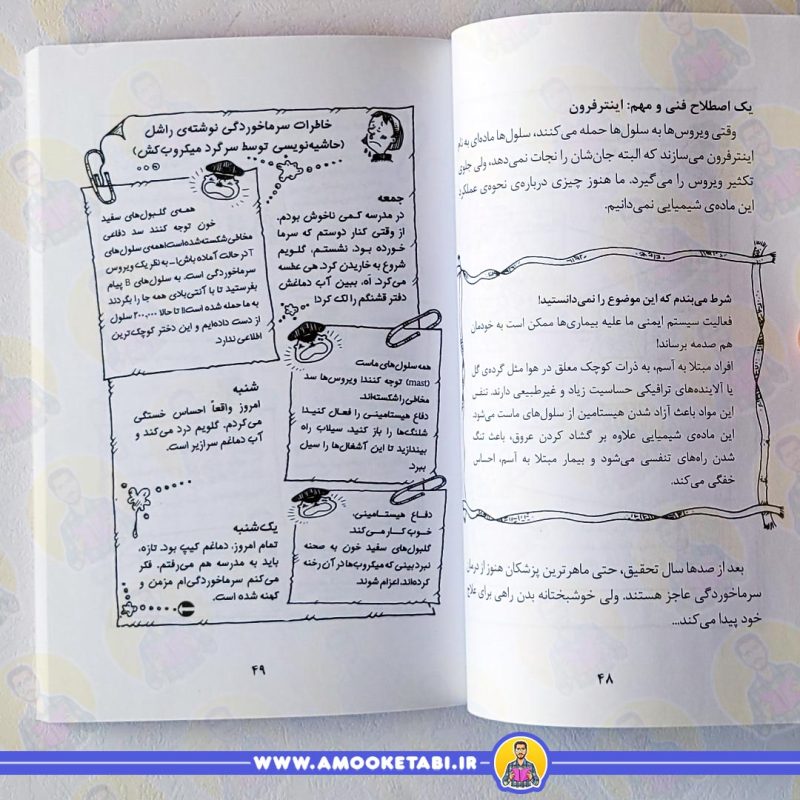 یک اصطلاح فنی و مهم: اینترفرون
وقتی ویروس‌ها به سلول‌ها حمله می‌کنند، سلول‌ها ماده‌ای به نام
اینترفرون می‌سازند که البته جان‌شان را نجات نمی‌دهد، ولی جلوی
تکثیر ویروس را می‌گیرد. ما هنوز چیزی درباره‌ی نحوه‌ی عملکرد
این ماده‌ی شیمیایی نمی‌دانیم.
شرط می‌بندم که این موضوع را نمی‌دانستید!
فعالیت سیستم ایمنی ما علیه بیماری‌ها ممکن است به خودمان
هم صدمه برساند!
افراد مبتلا به آسم، به ذرات کوچک معلق در هوا مثل گرده‌ی گل
یا آلاینده‌های ترافیکی حساسیت زیاد و غیرطبیعی دارند. تنفس
این مواد باعث آزاد شدن هیستامین از سلول‌های ماست می‌شود.
این ماده‌ی شیمیایی علاوه بر گشاد کردن عروق، باعث تنگ
شدن راه‌های تنفسی می‌شود و بیمار مبتلا به آسم، احساس
خفگی می‌کند.
بعد از صدها سال تحقیق، حتی ماهرترین پزشکان هنوز از درمان
سرماخوردگی عاجز هستند. ولی خوشبختانه بدن راهی برای علاج
خود پیدا می‌کند...
۴۸
خاطرات سرماخوردگی نوشته‌ی راشل
(حاشیه‌نویسی توسط سرگرد میکروب‌کش)
جمعه
در مدرسه کمی ناخوش بودم.
از وقتی کنار دوستم که سرما
خورده بود، نشستم، گلویم
شروع به خاریدن کرد. هی عطسه
می‌کرد. اَه، ببین آب دماغش
دفتر قشنگم را لک کرد!
همه‌ی گلبول‌های سفید
خون توجه کنند سد دفاعی
مخاطی شکسته شده است! همه‌ی سلول‌های
T در حالت آماده باش!... به نظر یک ویروس
سرماخوردگی است. به سلول‌های B پیام
بفرستید تا با آنتی‌بادی همه جا را بگردند
به ما حمله شده است!! تا حالا ۲۰۰,۰۰۰ سلول
از دست داده‌ایم و این دختر کوچک‌ترین
اطلاعی ندارد.
همه سلول‌های ماست
(mast) توجه کنند! ویروس‌ها سد
مخاطی را شکسته‌اند.
دفاع هیستامینی را فعال کنید!
شلنگ‌ها را باز کنید. سیلاب راه
بیندازید تا این آشغال‌ها را سیل
ببرد.
شنبه
امروز واقعاً احساس خستگی
می‌کردم. گلویم درد می‌کند و
آب دماغم سرازیر است.
دفاع هیستامینی،
خوب کار می‌کند.
گلبول‌های سفید خون به صحنه
نبرد بینی که میکروب‌ها در آن رخنه
کرده‌اند، اعزام شوند.
یک‌شنبه
تمام امروز، دماغم کیپ بود. تازه،
باید به مدرسه هم می‌رفتم. فکر
می‌کنم سرماخوردگی‌ام مزمن و
کهنه شده است.
۴۹
WWW.AMOOKETABI.IR